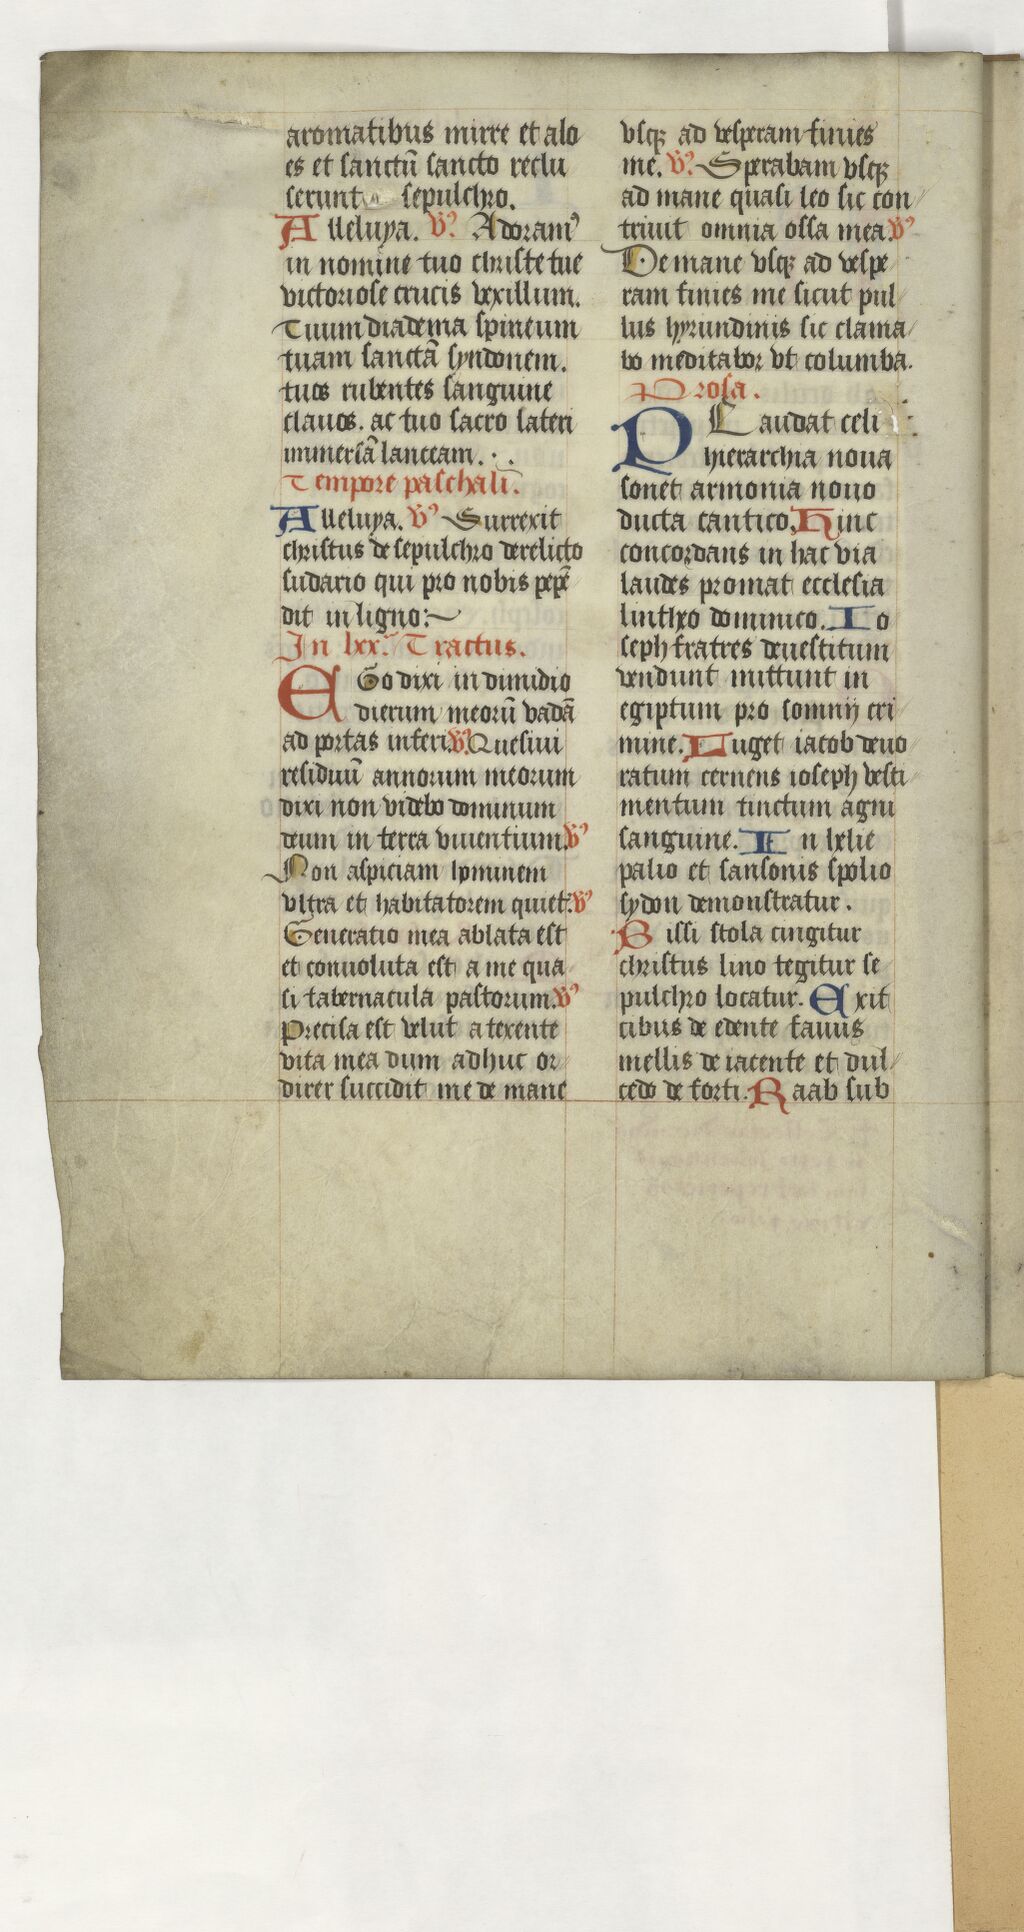 aromatibus mirre et alo
es et sanctū sancto reclu
serunt sepulchro.
Alleluya. V̓. Adoram᷒
in nomine tuo christe tue
victoriose crucis vexillum.
Tuum diadema spineum
tuam sanctā syndonem.
tuos rubentes sanguine
clauos. ac tuo sacro lateri
immersā lanceam.
Tempore paschali.
Alleluya. V̓ Surrexit
christus de sepulchro derelicto
sudario qui pro nobis pepē
dit in ligno:
In lxx. Tractus.
EGo dixi in dimidio
dierum meorū vadā
ad portas inferi. V̓. Quesiui
residuū annorum meorum
dixi non videbo dominum
deum in terra viuentium. V̓
Non aspiciam hominem
vltra et habitatorem quiet̄. V̓
Generatio mea ablata est
et conuoluta est a me qua
si tabernacula pastorum. V̓
Precisa est velut a texente
vita mea dum adhuc or
direr succidit me de mane
vsqꝫ ad vesperam finies
me. V̓. Sperabam vsqꝫ
ad mane quasi leo sic con
triuit omnia ossa mea. V̓
De mane vsqꝫ ad vespe
ram finies me sicut pul
lus hyrundinis sic clama
bo meditabor vt columba.
Prosa.
Laudat celi
hierarchia noua
sonet armonia nouo
ducta cantico. Hinc
concordans in hac via
laudes promat ecclesia
lintheo dominico. Io
seph fratres deuestitum
vendunt mittunt in
egiptum pro somnij cri
mine. Luget iacob deuo
ratum cernens ioseph vesti
mentum tinctum agni
sanguine. In helie
palio et sansonis spolio
sydon demonstratur.
Bissi stola cingitur
christus lino tegitur se
pulchro locatur. Exit
cibus de edente fauus
mellis de iacente et dul
cedo de forti. Raab sub